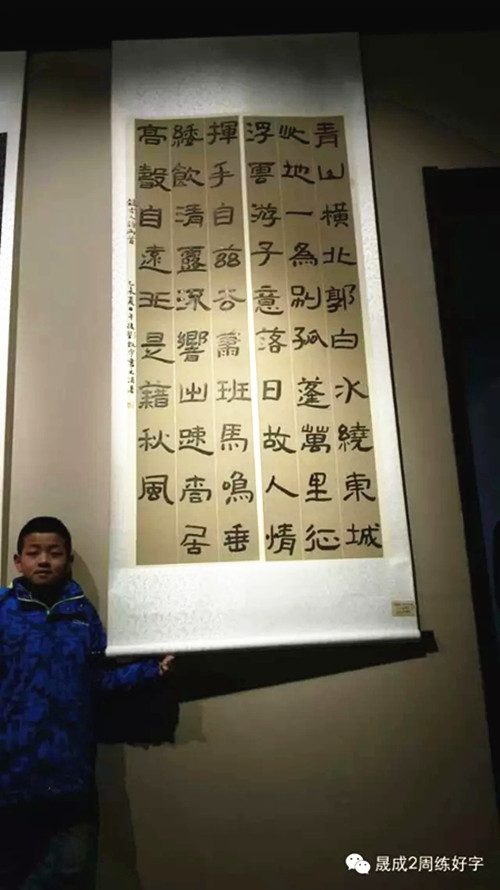 青山橫北郭白水繞東城
此地一為別孤蓬萬里征
浮雲游子意落日故人情
揮手自茲去蕭班馬鳴垂
緌飲清露流響出疎桐居
高聲自遠非是藉秋風
錄古人詩兩首
乙未夏
晟成2周练好字